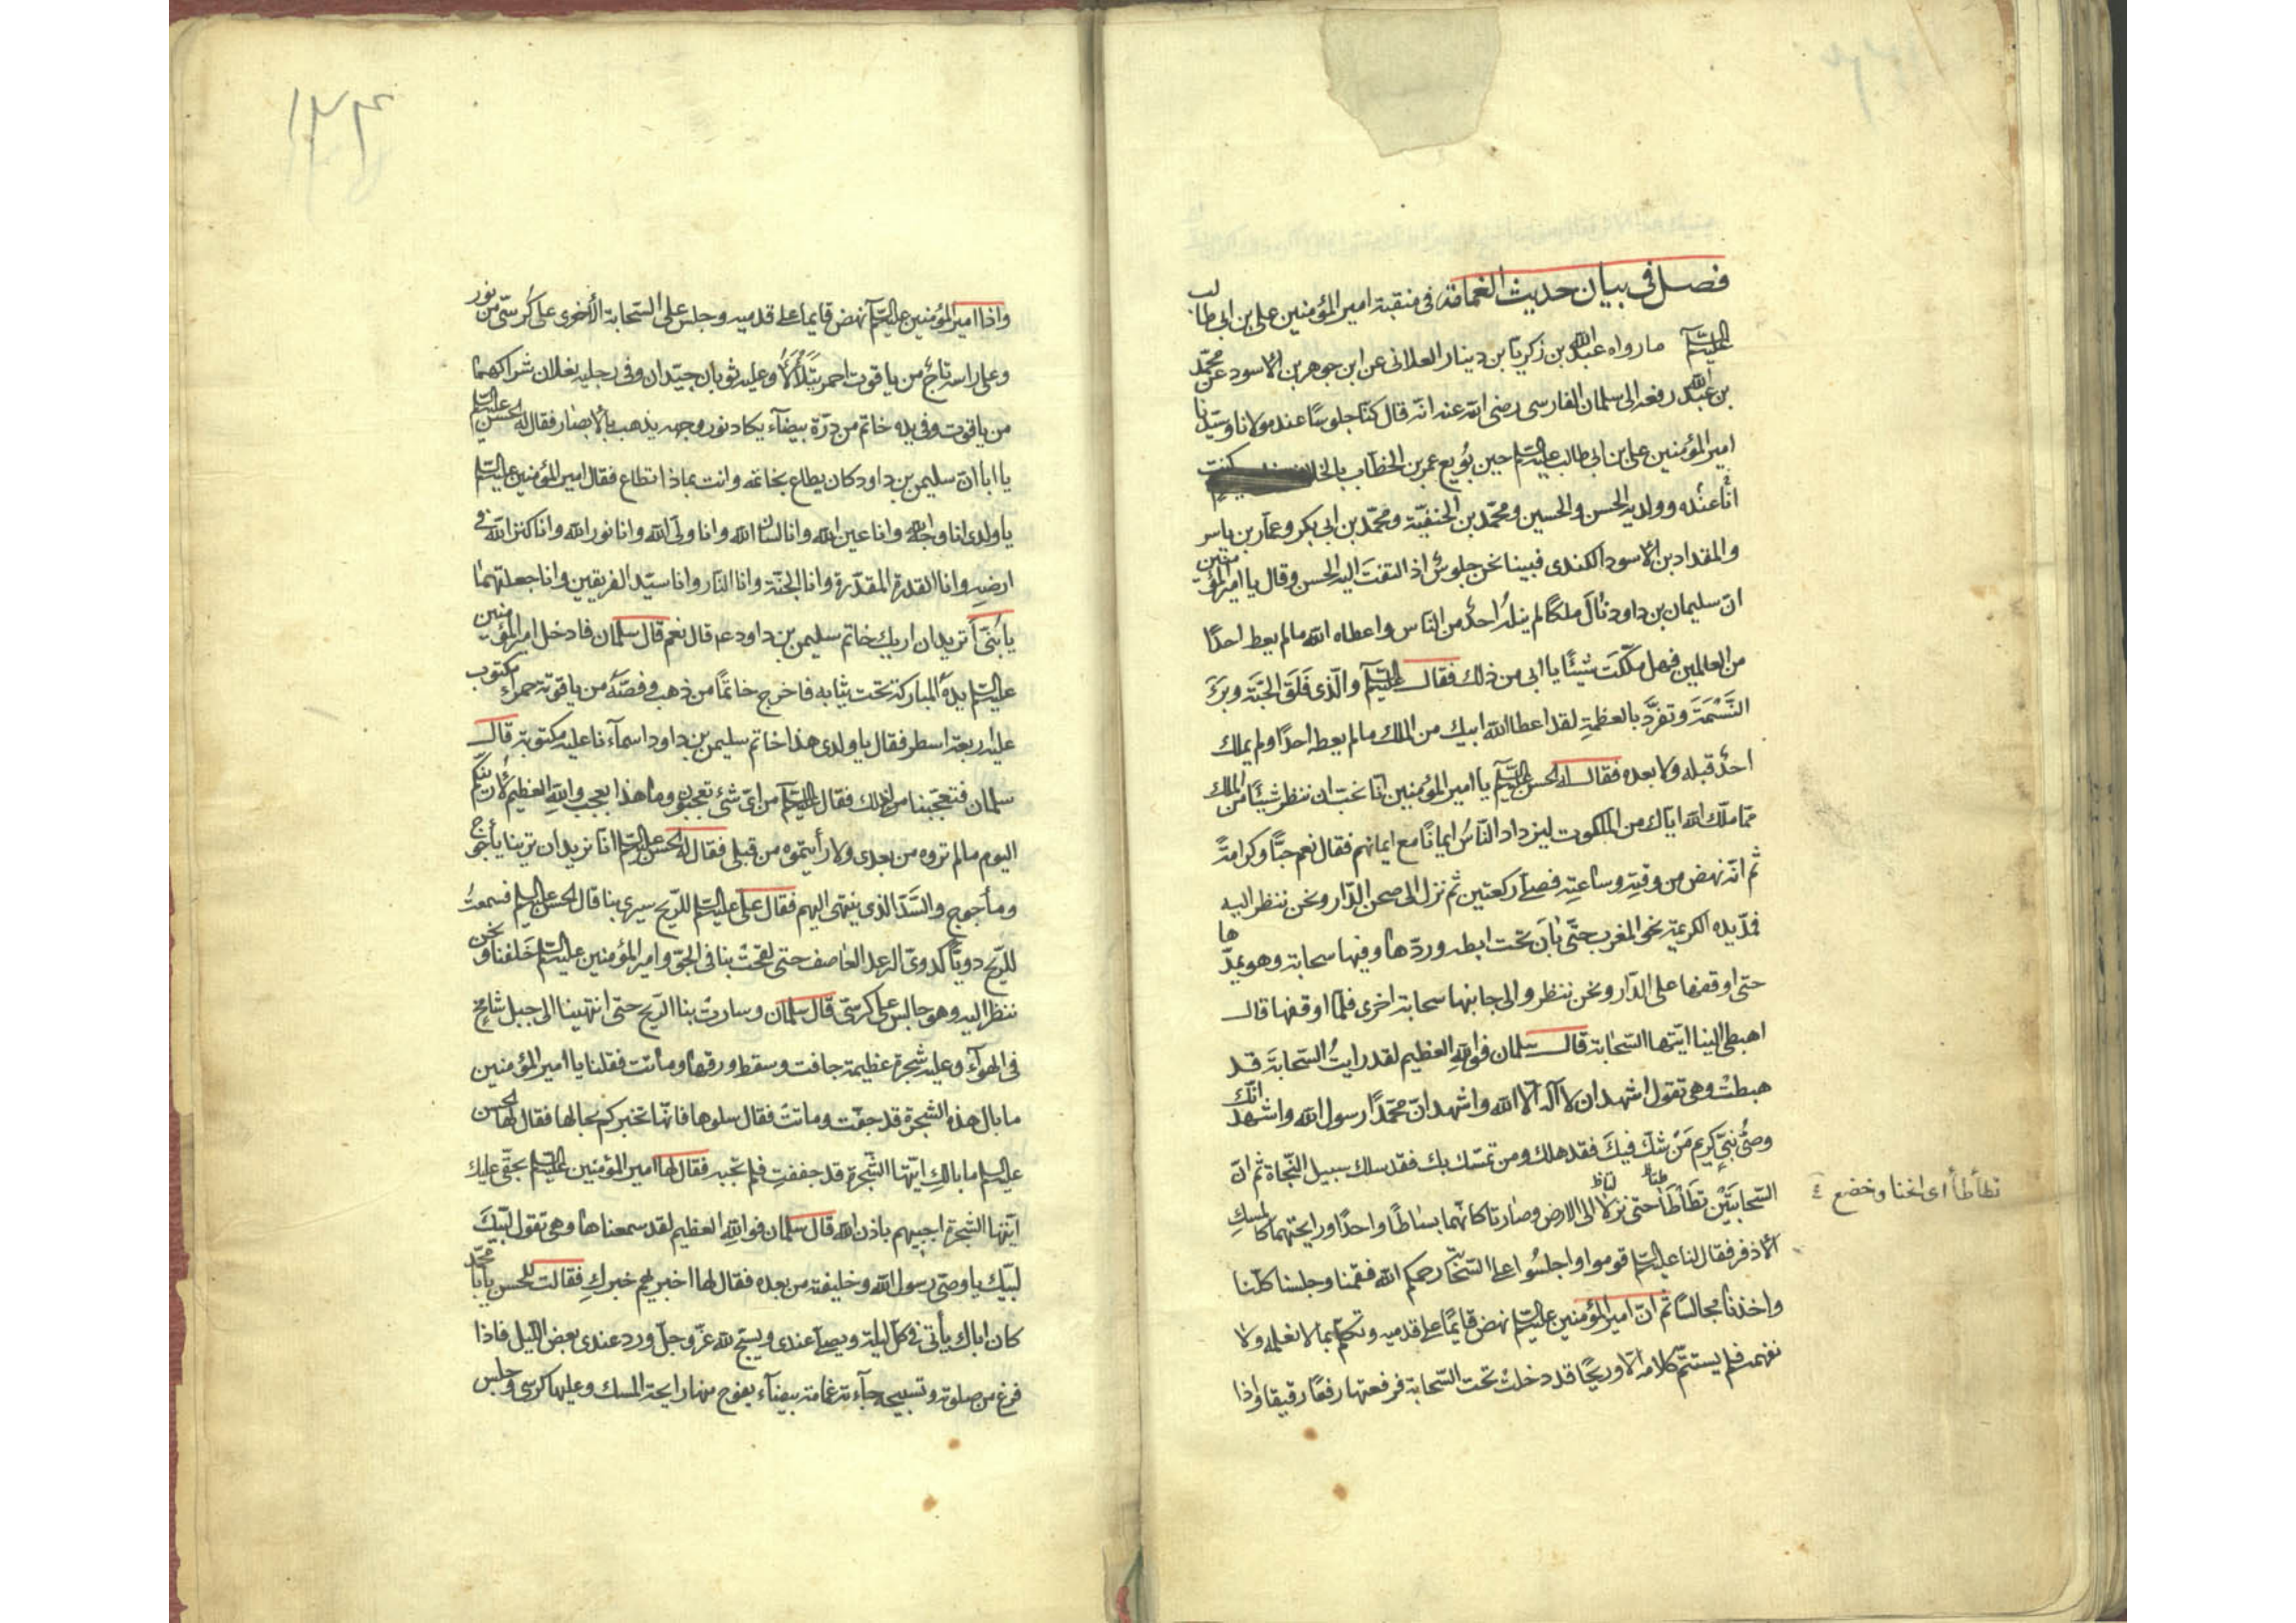 فصل في بيان حديث الغمامة في منقبة امير المؤمنين علي بن ابي طالب
عليه السلم ما رواه عبد الله بن زكريا بن دينار العلاني عن ابن جوهر بن الاسود عن محمّد
بن عبد الله رفعه الى سلمان الفارسي رضى الله عنه انه قال كنّا جلوسًا عند مولانا وسيّدنا
امير المؤمنين علي بن ابي طالب عليه السلم حين بُويع عمر بن الخطّاب كنت
انا عنده وولديه الحسن والحسين ومحمّد بن الحنفيّة ومحمّد بن ابي بكر وعمّار بن ياسر
والمقداد بن الاسود الكندى فبينا نحن جلوسٌ اذ التفتَ اليه الحسن وقال يا امير المؤمنين
انّ سليمان بن داود نالَ ملكًا لم ينلهُ احدٌ من النّاس واعطاه الله مالم يعط احدًا
من العالمين فهل ملّكتَ شيئًا يا ابى من ذلك فقال عليه السلم والّذى فَلَقَ الحبّة وبَرَءَ
النَّسْمَةَ وتفرَّد بالعظمةِ لقد اعطا الله ابيك من الملك مالم يعطه احدًا ولم يملك
احدٌ قبله ولا بعده فقال له الحسن عليه السلم يا امير المؤمنين انّا نحبّ ان ننظر شيئًا من الملك
ممّا ملّك الله ايّاك من الملكوت ليزداد النّاسُ ايمانًا مع ايمانهم فقال نعم حبًّا وكرامةً
ثم انّه نهض من وقتِه وساعتِه فصلّى ركعتين ثم نزل الى صحن الدّار ونحن ننظر اليه
فمدّ يده الكريمة نحو المغرب حتّى بانَ تحت ابطه وردّها وفيها سحابة وهو يمدّها
حتى اوقفها على الدّار ونحن ننظر والى جانبها سحابة اخرى فلمّا اوقفها قال
اهبطى الينا ايّتها السّحابة قال سلمان فوالله العظيم لقد رايتُ السّحابةَ قد
هبطتْ وهى تقول اشهد ان لا اله الّا الله واشهد انّ محمّدًا رسول الله واشهد انّك
وصىُّ نبيٍّ كريم مَنْ شكّ فيكَ فقد هلك ومن تمسّك بك فقد سلك سبيل النّجاة ثم انّ
السّحابتَيْن تطَأطَأَ حتى نزلا الى الارض وصارتا كانّهما بساطًا واحدًا ورايحتهما كالمسكِ
الاذفر فقال لنا عليه السلم قوموا واجلسُوا على السّحاب رحمكم الله فقمنا وجلسنا كلّنا
واخذنا مجالسًا ثم انّ امير المؤمنين عليه السلم نهض قايمًا على قدميه وتكلّم بما لا نعلمه ولا
نفهمه فلم يستتمّ كلامه الّا وريحًا قد دخلتْ تحت السّحابة فرفعتها رفعًا رقيقا واذا
تطأطأ أى انحنا وخضع
١٣٤
واذا امير المؤمنين عليه السلم نهض قايما على قدميه وجلس على السّحابة الأخرى على كُرسّى من نور
وعلى راسه تاجٌ من ياقوت احمر يتلألأ وعليه ثوبان جيّدان وفى رجليه نعلان شراكهما
من ياقوت وفى يده خاتم من درّة بيضآء يكاد نور وجهه يذهب بالأبصار فقال له الحسن عليه السلم
يا ابا انّ سليمن بن داود كان يطاع بخاتمه وانت بماذا تطاع فقال امير المؤمنين عليه السلم
يا ولدى انا وجه الله وانا عين الله وانا لسان الله وانا ولىّ الله وانا نور الله وانا كنز الله فى
ارضهِ وانا القدرة المقدّرة وانا الجنّة وانا النّار وانا سيّد الفريقين وانا جعلتهما
يا بُنىّ أتريد ان اريك خاتم سليمن بن داود عم قال نعم قال سلمان فادخل امير المؤمنين
عليه السلم يدهُ المباركة تحت ثيابه فاخرج خاتمًا من ذهب وفصّهُ من ياقوتة حمراء مكتوب
عليه اربعة اسطر فقال يا ولدى هذا خاتم سليمن بن داود اسمآءنا عليه مكتوبة قال
سلمان فتعجّبنا من ذلك فقال عليه السلم من اىّ شئ تعجبون وما هذا بعجب والله العظيم لأرينّكم
اليوم مالم تروه من بعدى ولا رأيتموه من قبلى فقال له الحسن عليه السلم انّا نريد ان ترينا يأجوج
ومأجوج والسّدّ الذى ينتهى اليهم فقال على عليه السلم للرّيح سيرى بنا قال الحسن عليه السلم فسمعتُ
للرّيح دويًّا كدوىّ الرعد العاصف حتى لفحتْ بنا فى الجوّ وامير المؤمنين عليه السلم خَلفنا ونحن
ننظر اليه وهو جالس على كرسّى قال سلمان وسارتْ بنا الرّيح حتى انتهينا الى جبل شامخ
فى الهوآءِ وعليه شجرة عظيمة جافت وسقط ورقها وماتت فقلنا يا امير المؤمنين
ما بال هذه الشجرة قد جفّت وماتتْ فقال سلوها فانّها تخبركم بحالها فقال لها الحسن
عليه السلم ما بالكِ ايّتها الشّجرة قد جففتِ فلم تجبه فقال لها امير المؤمنين عليه السلم بحقّى عليك
ايّتها الشجرة اجيبهم باذن الله قال سلمان فوالله العظيم لقد سمعناها وهى تقول لبّيكَ
لبّيك يا وصىّ رسول الله وخليفته من بعده فقال لها اخبريهم خبركِ فقالت للحسن يابا محمّد
كان اباك يأتى فى كلّ ليلة ويصلّى عندى ويسبّح لله عزّ وجلّ ورد عندى بعض اللّيل فاذا
فرغ من صلوته وتسبيحه جآءته غمامة بيضآء يفوح منها رايحة المسك وعليها كرسى وجلس